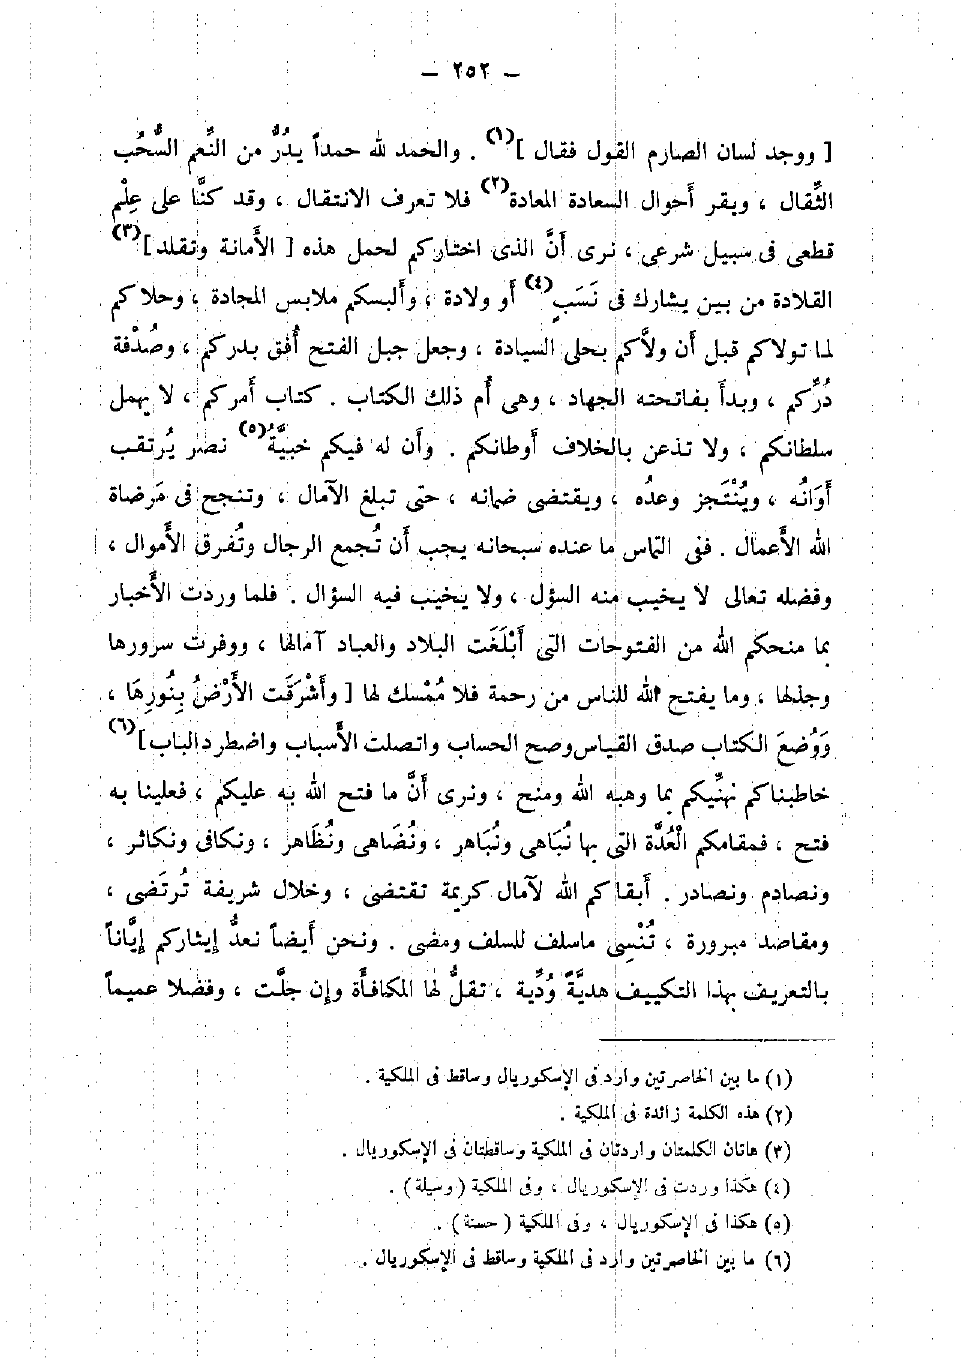 — ٢٥٢ —
[ ووجد لسان الصارم القول فقال ](١) . والحمد لله حمداً يدُرُّ من النِّعم السُّحُب
الثِّقال ، ويقر أحوال السعادة المعادة(٢) فلا تعرف الانتقال ، وقد كنَّا على عِلْم
قطعى فى سبيل شرعى ، نرى أنَّ الذى اختاركم لحمل هذه [ الأمانة وتقلد ](٣)
القلادة من بين يشارك فى نَسَبٍ(٤) أو ولادة ، وألبسكم ملابس المجادة ، وحلاكم
لما تولاكم قبل أن ولاَّكم بحلى السيادة ، وجعل جبل الفتح أُفق بدركم ، وصُدْفة
دُرِّكم ، وبدأ بفاتحته الجهاد ، وهى أُم ذلك الكتاب . كتاب أمركم ، لا يهمل
سلطانكم ، ولا تذعن بالخلاف أوطانكم . وأن له فيكم خبيَّةُ(٥) نصر يُرتقب
أَوَانُه ، ويُنْتَجز وعدُه ، ويقتضى ضمانه ، حتى تبلغ الآمال ، وتنجح فى مَرضاة
الله الأعمال . ففى التماس ما عنده سبحانه يجب أن تُجمع الرجال وتُفرق الأموال ،
وفضله تعالى لا يخيب منه السؤل ، ولا يخيب فيه السؤال . فلما وردت الأخبار
بما منحكم الله من الفتوحات التى أَبْلَغَت البلاد والعباد آمالها ، ووفرت سرورها
وجذلها ، وما يفتح الله للناس من رحمة فلا مُمْسك لها [ وأَشْرَقَت الأَرْضُ بِنُورِهَا ،
وَوُضعَ الكتاب صدق القياس وصح الحساب واتصلت الأسباب واضطرد الباب ](٦)
خاطبناكم نهنِّيكم بما وهبه الله ومنح ، ونرى أنَّ ما فتح الله به عليكم ، فعلينا به
فتح ، فمقامكم الْعُدَّة التى بها نُبَاهى ونُبَاهر ، ونُضَاهى ونُظَاهر ، ونكافى ونكاثر ،
ونصادم ونصادر . أبقاكم الله لآمال كريمة تقتضى ، وخلال شريفة تُرتَضى ،
ومقاصد مبرورة ، تُنْسِى ماسلف للسلف ومضى . ونحن أيضاً نعدُّ إيثاركم إيَّاناً
بالتعريف بهذا التكييف هديَّةً وُدِّية ، تقلُّ لها المكافأة وإن جلَّت ، وفضلا عميماً
(١) ما بين الخاصرتين وارد فى الإسكوريال وساقط فى الملكية .
(٢) هذه الكلمة زائدة فى الملكية .
(٣) هاتان الكلمتان واردتان فى الملكية وساقطتان فى الإسكوريال .
(٤) هكذا وردت فى الإسكوريال ، وفى الملكية ( وسيلة ) .
(٥) هكذا فى الإسكوريال ، وفى الملكية ( حسنة ) .
(٦) ما بين الخاصرتين وارد فى الملكية وساقط فى الإسكوريال .